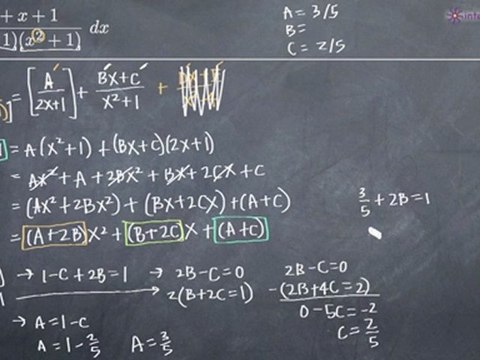 + x + 1
1)(x² + 1) dx
A = 3/5
B =
C = 2/5
= [A / 2x+1] + Bx+C / x²+1 +
= A(x²+1) + (Bx+C)(2x+1)
= Ax² + A + 2Bx² + Bx + 2Cx + C
= (Ax² + 2Bx²) + (Bx + 2Cx) + (A+C)
= (A+2B)x² + (B+2C)x + (A+C)
3/5 + 2B = 1
→ 1-C+2B=1 → 2B-C=0
1 → 2(B+2C=1)
→ A=1-C
A=1-2/5 A=3/5
2B-C=0
-(2B+4C=2)
0-5C=-2
C=2/5